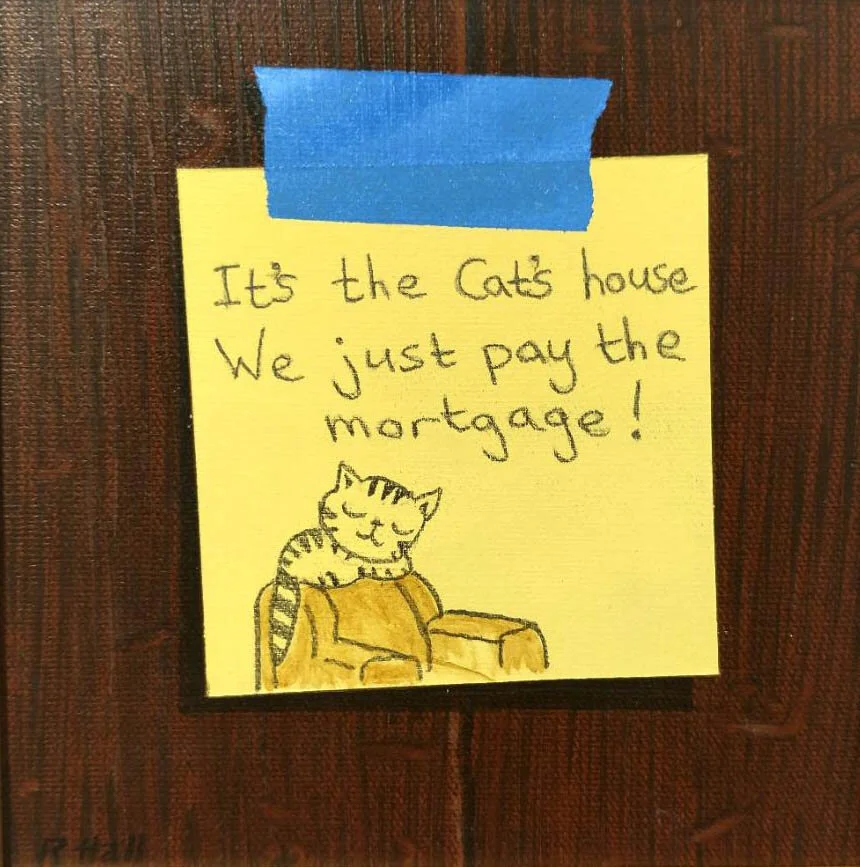 It's the Cat's house
We just pay the
mortgage!
R Hall